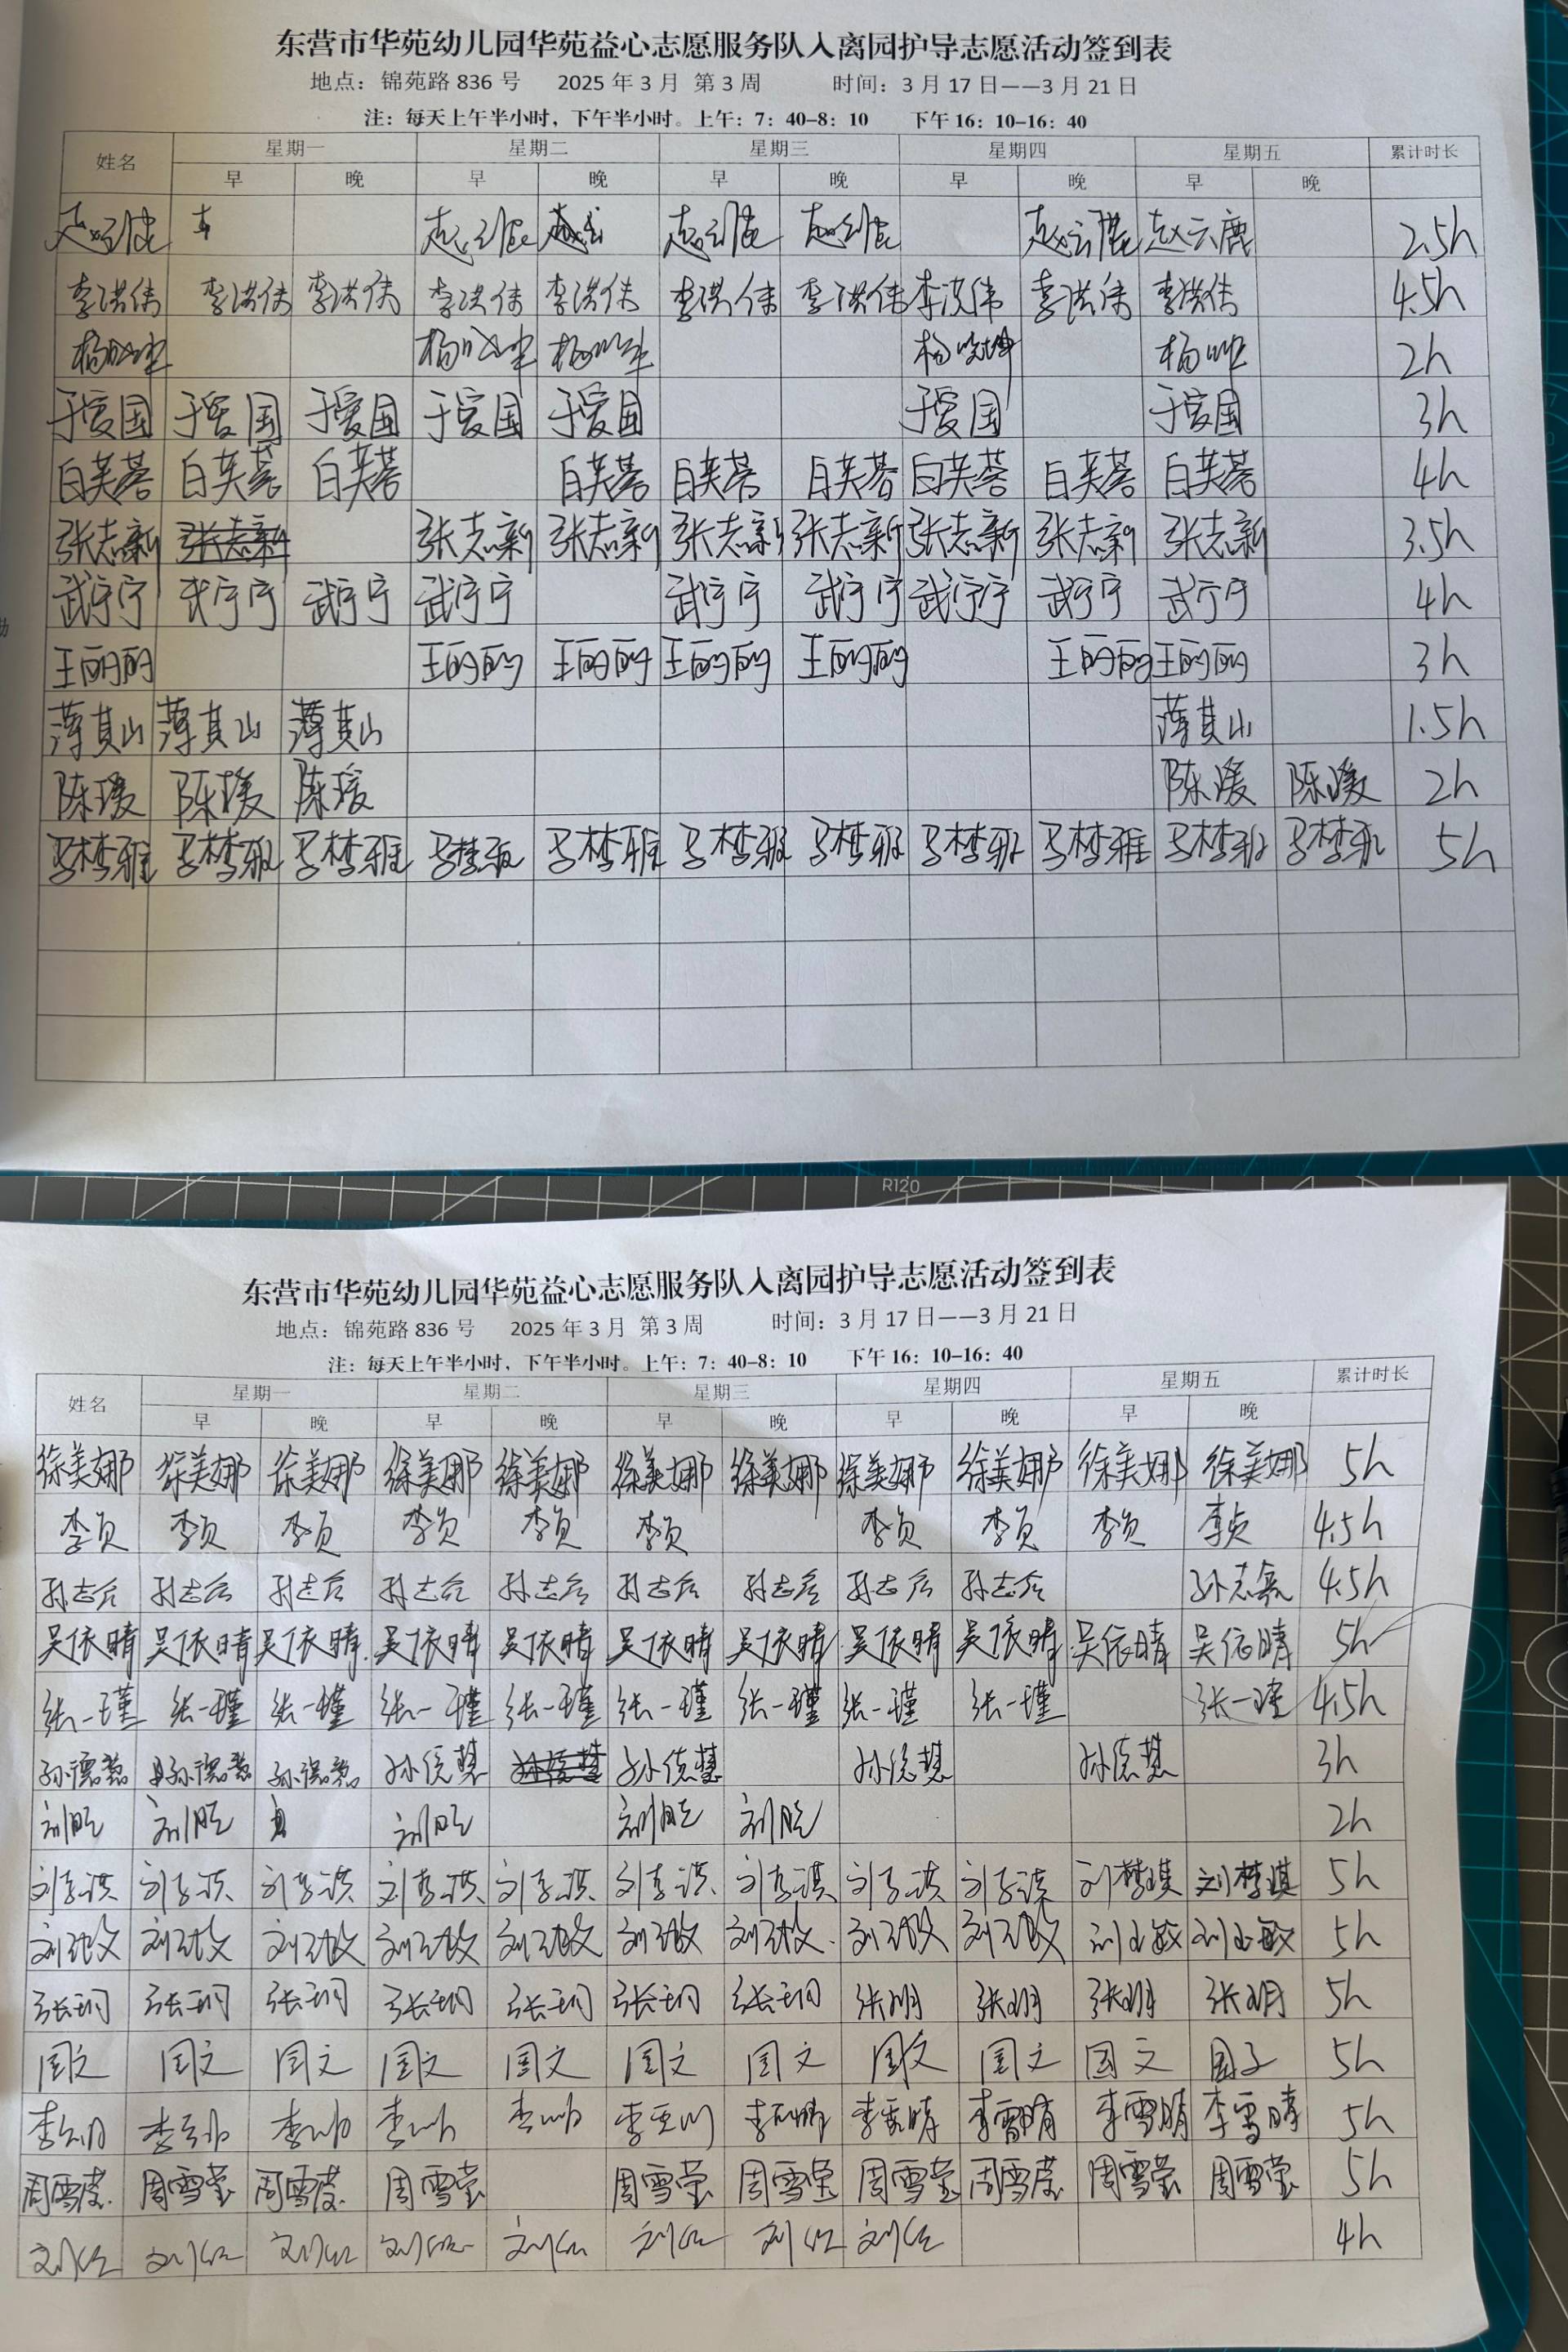 东营市华苑幼儿园华苑益心志愿服务队入离园护导志愿活动签到表
地点：锦苑路 836 号 2025 年 3 月 第 3 周 时间：3 月 17 日——3 月 21 日
注：每天上午半小时，下午半小时。上午：7：40-8：10 下午 16：10-16：40
姓名 星期一 星期二 星期三 星期四 星期五 累计时长
早 晚 早 晚 早 晚 早 晚 早 晚
赵云鹿 赵云鹿 赵云鹿 赵云鹿 赵云鹿 赵云鹿 2.5h
李洪伟 李洪伟 李洪伟 李洪伟 李洪伟 李洪伟 李洪伟 李洪伟 李洪伟 李洪伟 4.5h
杨 杨 杨 杨 杨 2h
于爱国 于爱国 于爱国 于爱国 于爱国 于爱国 于爱国 3h
白芙蓉 白芙蓉 白芙蓉 白芙蓉 白芙蓉 白芙蓉 白芙蓉 白芙蓉 白芙蓉 4h
张志新 张志新 张志新 张志新 张志新 张志新 张志新 张志新 张志新 3.5h
武宁宁 武宁宁 武宁宁 武宁宁 武宁宁 武宁宁 武宁宁 武宁宁 武宁宁 4h
王丽丽 王丽丽 王丽丽 王丽丽 王丽丽 王丽丽 王丽丽 3h
薄其山 薄其山 薄其山 薄其山 1.5h
陈瑗 陈瑗 陈瑗 陈瑗 陈瑗 2h
马梦雅 马梦雅 马梦雅 马梦雅 马梦雅 马梦雅 马梦雅 马梦雅 马梦雅 马梦雅 马梦雅 5h
R120
东营市华苑幼儿园华苑益心志愿服务队入离园护导志愿活动签到表
地点：锦苑路 836 号 2025 年 3 月 第 3 周 时间：3 月 17 日——3 月 21 日
注：每天上午半小时，下午半小时。上午：7：40-8：10 下午 16：10-16：40
姓名 星期一 星期二 星期三 星期四 星期五 累计时长
早 晚 早 晚 早 晚 早 晚 早 晚
徐美娜 徐美娜 徐美娜 徐美娜 徐美娜 徐美娜 徐美娜 徐美娜 徐美娜 徐美娜 徐美娜 5h
李贞 李贞 李贞 李贞 李贞 李贞 李贞 李贞 李贞 李贞 4.5h
孙志 孙志 孙志 孙志 孙志 孙志 孙志 孙志 孙志 孙志 4.5h
吴依晴 吴依晴 吴依晴 吴依晴 吴依晴 吴依晴 吴依晴 吴依晴 吴依晴 吴依晴 吴依晴 5h
张一瑾 张一瑾 张一瑾 张一瑾 张一瑾 张一瑾 张一瑾 张一瑾 张一瑾 张一瑾 4.5h
孙德慧 孙德慧 孙德慧 孙德慧 孙德慧 孙德慧 孙德慧 孙德慧 3h
刘 刘 刘 刘 刘 2h
刘梦琪 刘梦琪 刘梦琪 刘梦琪 刘梦琪 刘梦琪 刘梦琪 刘梦琪 刘梦琪 刘梦琪 刘梦琪 5h
刘玉敏 刘玉敏 刘玉敏 刘玉敏 刘玉敏 刘玉敏 刘玉敏 刘玉敏 刘玉敏 刘玉敏 刘玉敏 5h
张玥 张玥 张玥 张玥 张玥 张玥 张玥 张玥 张玥 张玥 张玥 5h
周文 周文 周文 周文 周文 周文 周文 周文 周文 周文 周文 5h
李雪晴 李雪晴 李雪晴 李雪晴 李雪晴 李雪晴 李雪晴 李雪晴 李雪晴 李雪晴 李雪晴 5h
周雪莹 周雪莹 周雪莹 周雪莹 周雪莹 周雪莹 周雪莹 周雪莹 周雪莹 周雪莹 5h
刘 刘 刘 刘 刘 刘 刘 刘 4h